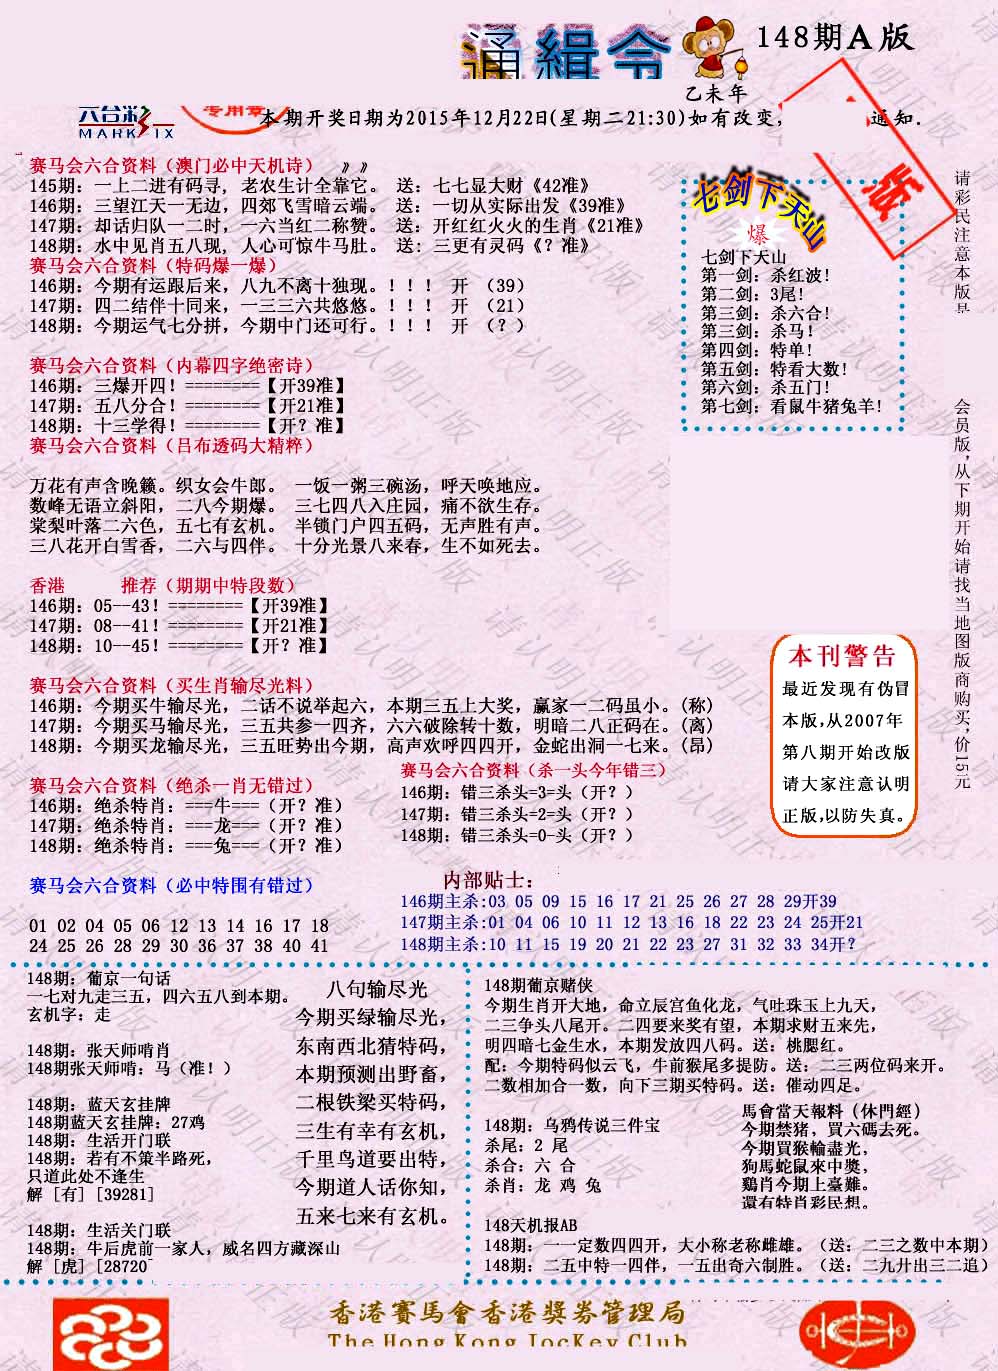 通緝令
148期A版
乙未年
六合彩
MARK SIX
专用章
本期开奖日期为2015年12月22日(星期二21:30)如有改变,
通知.
赛马会六合资料（澳门必中天机诗） 》》
145期：一上二进有码寻, 老农生计全靠它。 送：七七显大财《42准》
146期：三望江天一无边，四郊飞雪暗云端。 送：一切从实际出发《39准》
147期：却话归队一二时，一六当红二称赞。 送：开红红火火的生肖《21准》
148期：水中见肖五八现，人心可惊牛马肚。 送：三更有灵码《？准》
赛马会六合资料（特码爆一爆）
146期：今期有运跟后来，八九不离十独现。！！！ 开 （39）
147期：四二结伴十同来，一三三六共悠悠。！！！ 开 （21）
148期：今期运气七分拼，今期中门还可行。！！！ 开 （？）
赛马会六合资料（内幕四字绝密诗）
146期：三爆开四！========【开39准】
147期：五八分合！========【开21准】
148期：十三学得！========【开？准】
赛马会六合资料（吕布透码大精粹）
万花有声含晚籁。织女会牛郎。 一饭一粥三碗汤，呼天唤地应。
数峰无语立斜阳，二八今期爆。 三七四八入庄园，痛不欲生存。
棠梨叶落二六色，五七有玄机。 半锁门户四五码，无声胜有声。
三八花开白雪香，二六与四伴。 十分光景八来春，生不如死去。
香港 推荐（期期中特段数）
146期：05--43！========【开39准】
147期：08--41！========【开21准】
148期：10--45！========【开？准】
赛马会六合资料（买生肖输尽光料）
146期：今期买牛输尽光，二话不说举起六，本期三五上大奖，赢家一二码虽小。(称)
147期：今期买马输尽光，三五共参一四齐，六六破除转十数，明暗二八正码在。(离)
148期：今期买龙输尽光，三五旺势出今期，高声欢呼四四开，金蛇出洞一七来。(昂)
赛马会六合资料（绝杀一肖无错过）
146期：绝杀特肖：===牛===（开？准）
147期：绝杀特肖：===龙===（开？准）
148期：绝杀特肖：===兔===（开？准）
赛马会六合资料（杀一头今年错三）
146期：错三杀头=3=头（开？）
147期：错三杀头=2=头（开？）
148期：错三杀头=0-头（开？）
赛马会六合资料（必中特围有错过）
01 02 04 05 06 12 13 14 16 17 18
24 25 26 28 29 30 36 37 38 40 41
内部贴士：
146期主杀:03 05 09 15 16 17 21 25 26 27 28 29开39
147期主杀:01 04 06 10 11 12 13 16 18 22 23 24 25开21
148期主杀:10 11 15 19 20 21 22 23 27 31 32 33 34开？
七剑下天山
爆
七剑下天山
第一剑：杀红波！
第二剑：3尾！
第三剑：杀六合！
第三剑：杀马！
第四剑：特单！
第五剑：特看大数！
第六剑：杀五门！
第七剑：看鼠牛猪兔羊！
请彩民注意本版是
会员版,从下期开始请找当地图版商购买,价15元
本刊警告
最近发现有伪冒
本版,从2007年
第八期开始改版
请大家注意认明
正版,以防失真。
148期：葡京一句话
一七对九走三五，四六五八到本期。
玄机字：走
148期：张天师啃肖
148期张天师啃：马（准！）
148期：蓝天玄挂牌
148期蓝天玄挂牌：27鸡
148期：生活开门联
148期：若有不策半路死，
只道此处不逢生
解 [有] [39281]
148期：生活关门联
148期：牛后虎前一家人，威名四方藏深山
解 [虎] [28720
八句输尽光
今期买绿输尽光，
东南西北猜特码，
本期预测出野畜，
二根铁梁买特码，
三生有幸有玄机，
千里鸟道要出特，
今期道人话你知，
五来七来有玄机。
148期葡京赌侠
今期生肖开大地，命立辰宫鱼化龙，气吐珠玉上九天，
二三争头八尾开。二四要来奖有望，本期求财五来先，
明四暗七金生水，本期发放四八码。送：桃腮红。
配：今期特码似云飞，牛前猴尾多提防。送：二三两位码来开。
二数相加合一数，向下三期买特码。送：催动四足。
148期：乌鸦传说三件宝
杀尾：2 尾
杀合：六 合
杀肖：龙 鸡 兔
馬會當天報料（休門經）
今期禁猪，買六碼去死。
今期買猴輸盡光，
狗馬蛇鼠來中獎，
鷄肖今期上臺難。
還有特肖彩民想。
148天机报AB
148期：一一定数四四开，大小称老称雌雄。（送：二三之数中本期）
148期：二五中特一四伴，一五出奇六制胜。（送：二九廾出三二追）
香港賽馬會香港獎券管理局
The Hong Kong Jockey Club